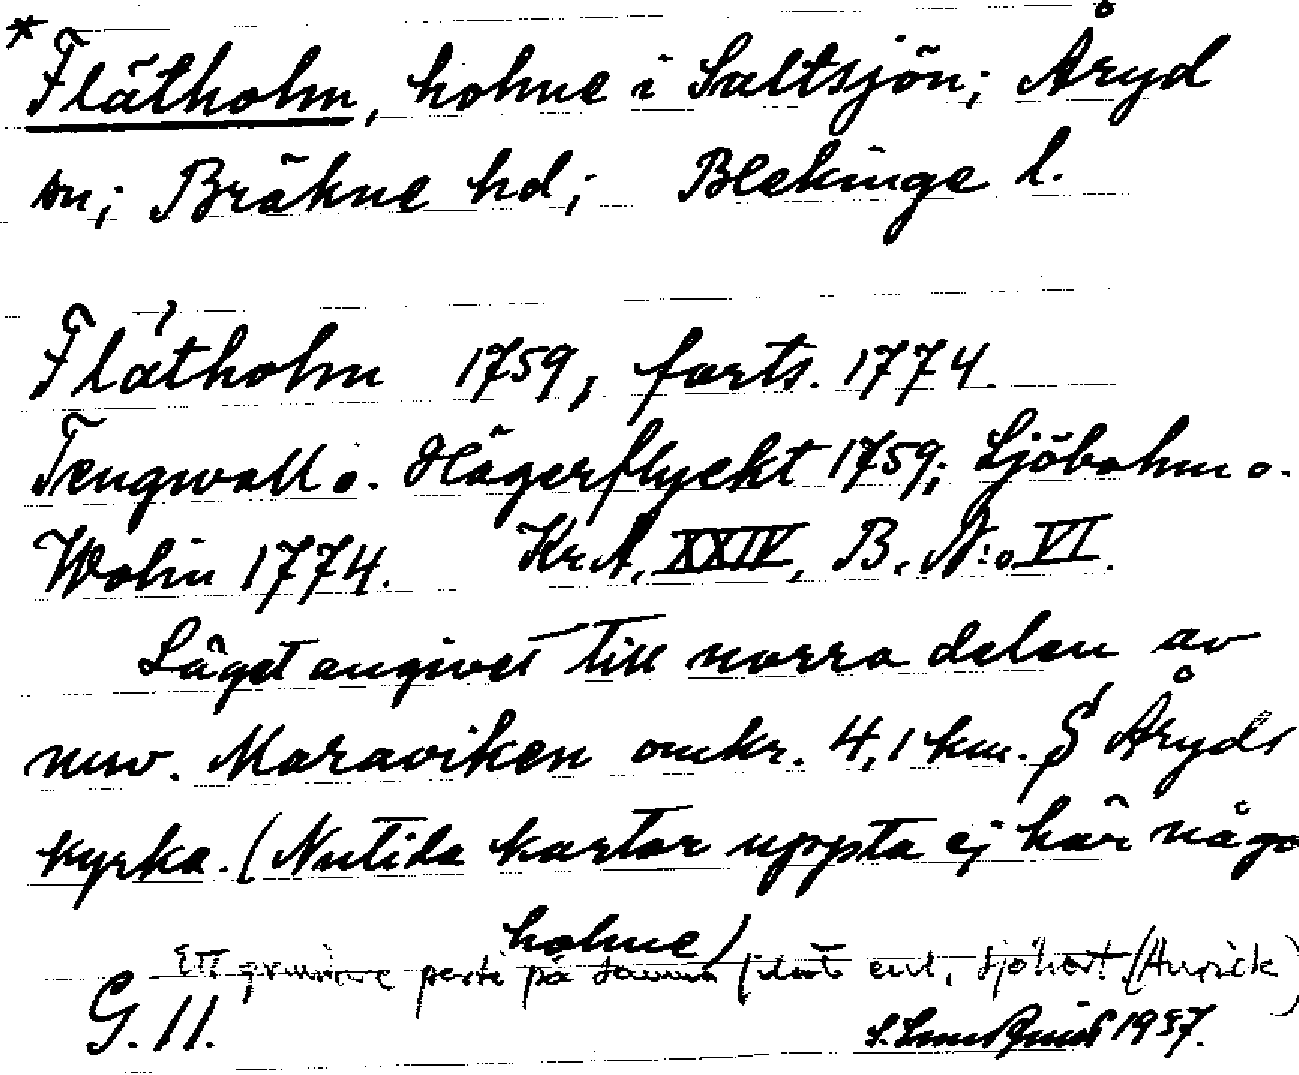 * Flätholm, holme i Saltsjön; Åryd
sn; Bräkne hd; Blekinge l.
Flätholm 1759, forts. 1774.
Tengwall o. Hägerflyckt 1759; Sjöbohm o.
Wolin 1774. Kr.A. XXIV, B. N:o VI.
Läget angivet till norra delen av
nuv. Maraviken omkr. 4,1 km. S Åryds
kyrka. (Nutida kartor uppta ej här någo
holme)
Ett grundare parti på samma plats enl. sjökort (Aurick)
G. 11.
S. Lundquist 1937.